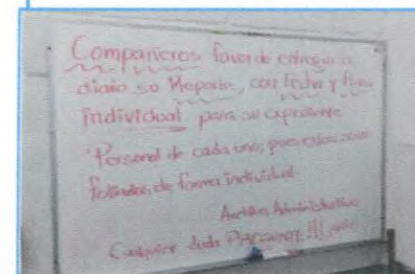 Compañeros favor de entregar a
diario su Reporte, con Fecha y
individual para su expediente
Personal de cada uno, pues estos
de forma individual
Administrativo
Cualquier duda